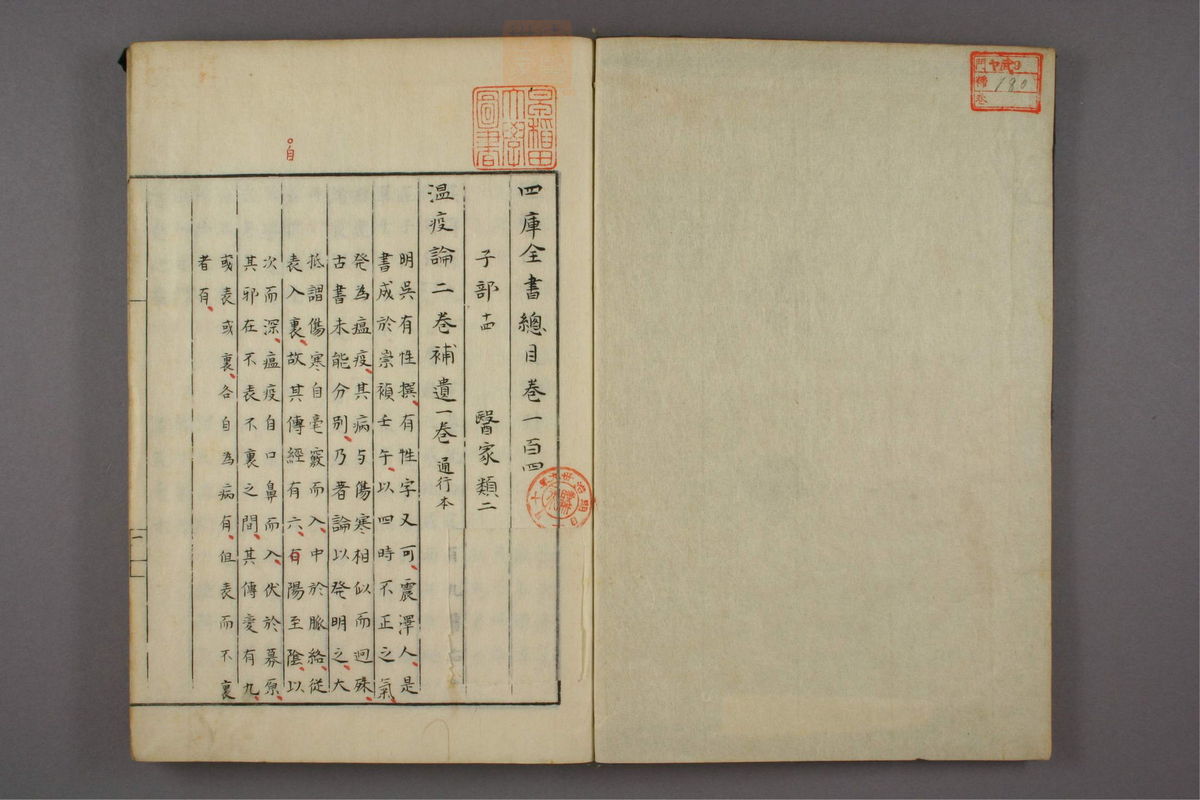 180
早稲田大學圖書
四庫全書總目卷一百四
子部十四 醫家類二
温疫論二卷補遺一卷 通行本
明吳有性撰、有性字又可、震澤人、是
書成於崇禎壬午、以四時不正之氣、
発為瘟疫、其病与傷寒相似而迥殊、
古書未能分別、乃著論以発明之、大
抵謂傷寒自毫竅而入、中於脈絡、從
表入裏、故其傳經有六、有陽至陰、以
自
次而深、瘟疫自口鼻而入、伏於募原、
其邪在不表不裏之間、其傳變有九、
或表或裏、各自為病、有、但表而不裏
者有、